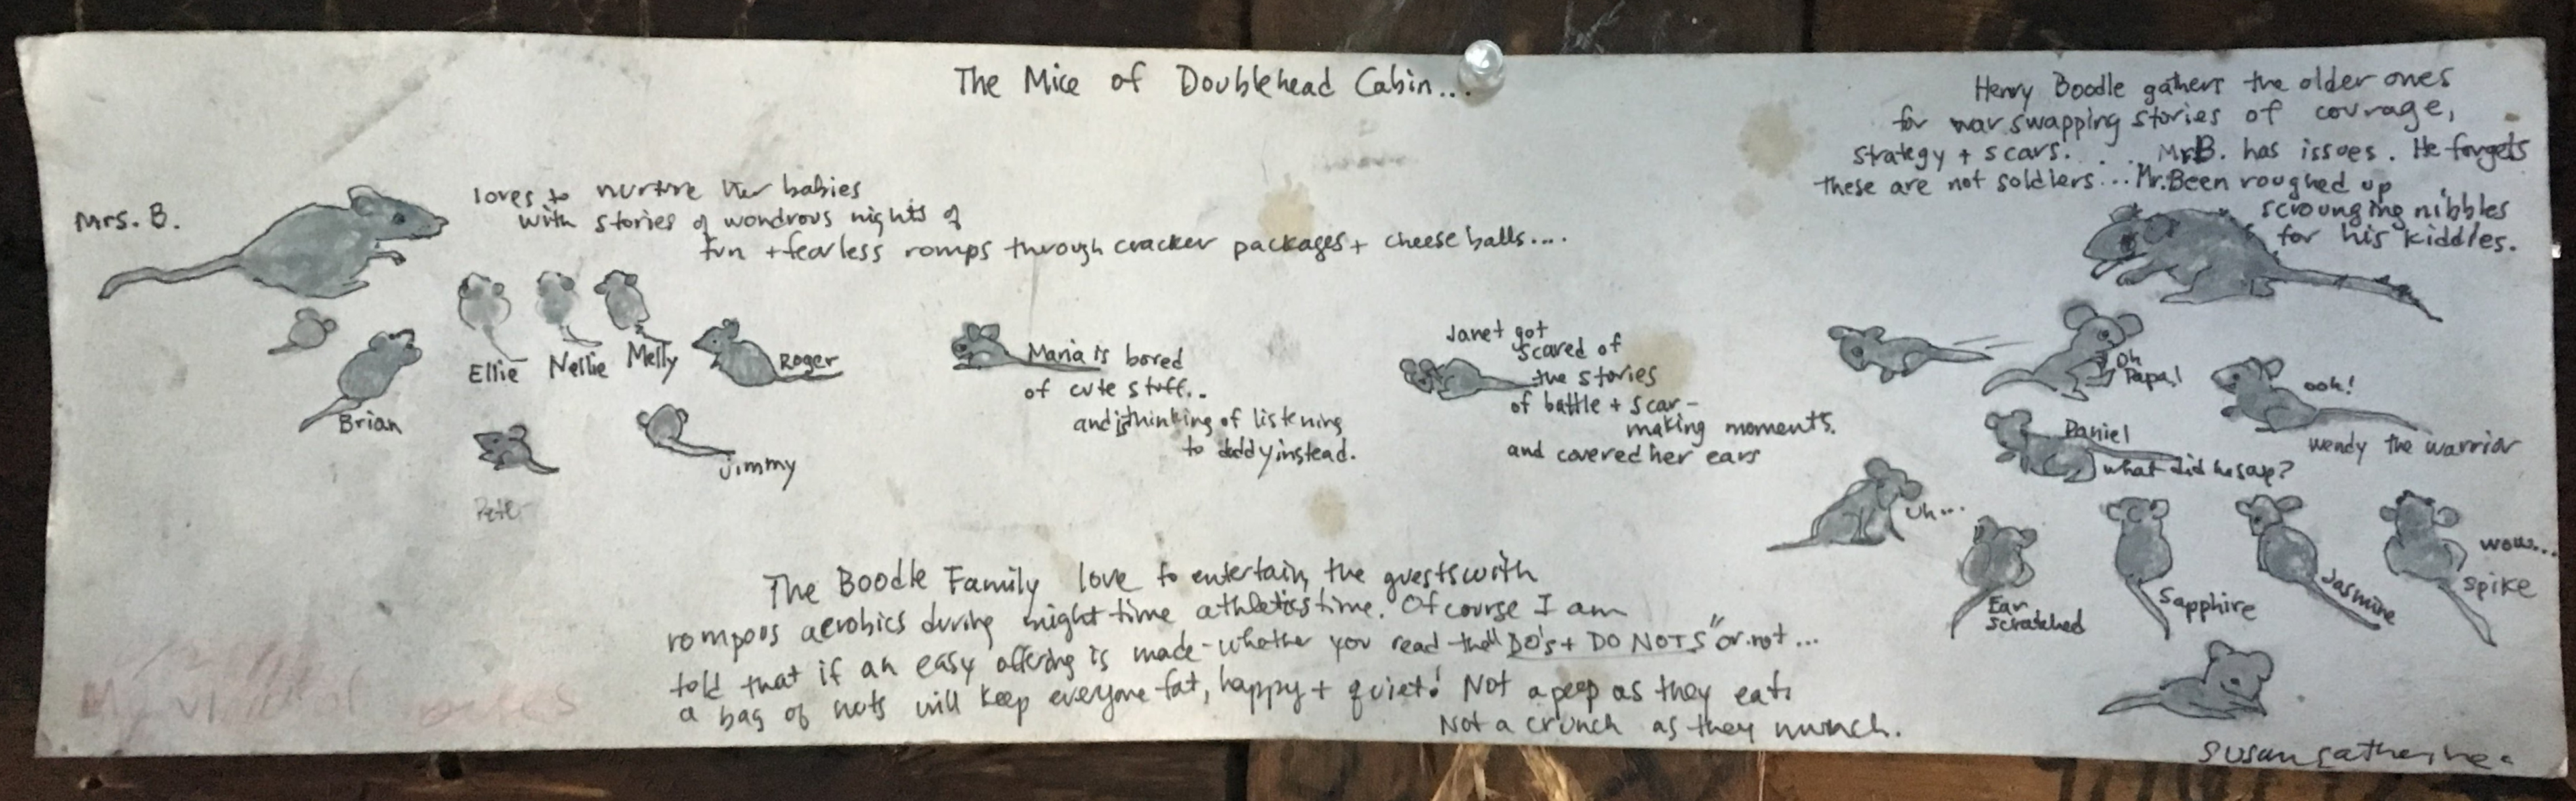 The Mice of Doublehead Cabin...
Henry Boodle gathers the older ones
for war swapping stories of courage,
strategy + scars. . . . Mr. B. has issues. He forgets
these are not soldiers... Mr. Been roughed up
scrounging nibbles
for his kiddles.
Mrs. B.
loves to nurture her babies
with stories of wondrous nights of
fun + fearless romps through cracker packages + cheese balls....
Ellie
Nellie
Melly
Roger
Brian
Jimmy
Pete
Maria is bored
of cute stuff..
and is thinking of listening
to daddy instead.
Janet got
scared of
the stories
of battle + scar-
making moments.
and covered her ears
Oh
Papa!
ooh!
wendy the warrior
Daniel
what did he say?
uh...
Ear
scratched
Sapphire
Jasmine
wow...
Spike
The Boodle Family love to entertain the guests with
rompous aerobics during night time athletics time. Of course I am
told that if an easy offering is made - whether you read the "DO's + DO NOTS" or not...
a bag of nuts will keep everyone fat, happy + quiet! Not a peep as they eat.
Not a crunch as they munch.
Susan Catherine